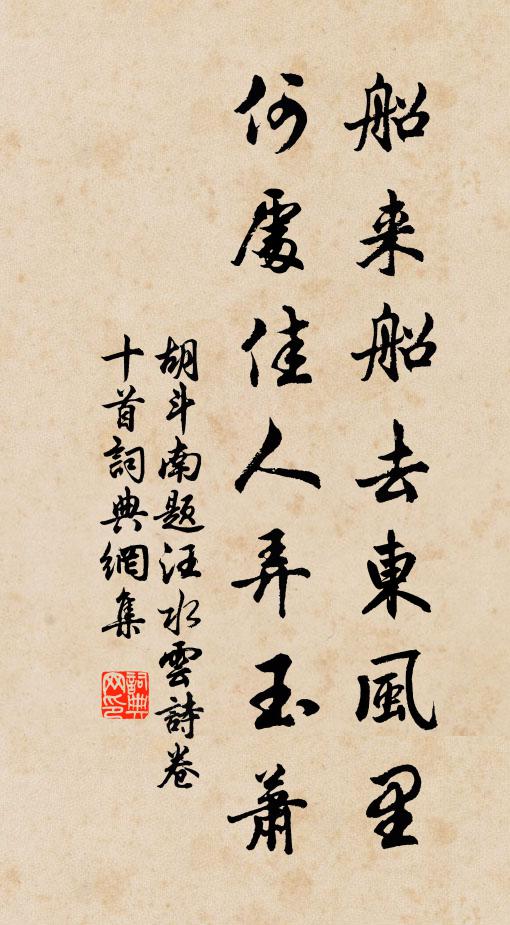 船来船去東風里
何處佳人弄玉蕭
胡斗南题汪水雲詩卷
十首詞典網集
詞典
网印